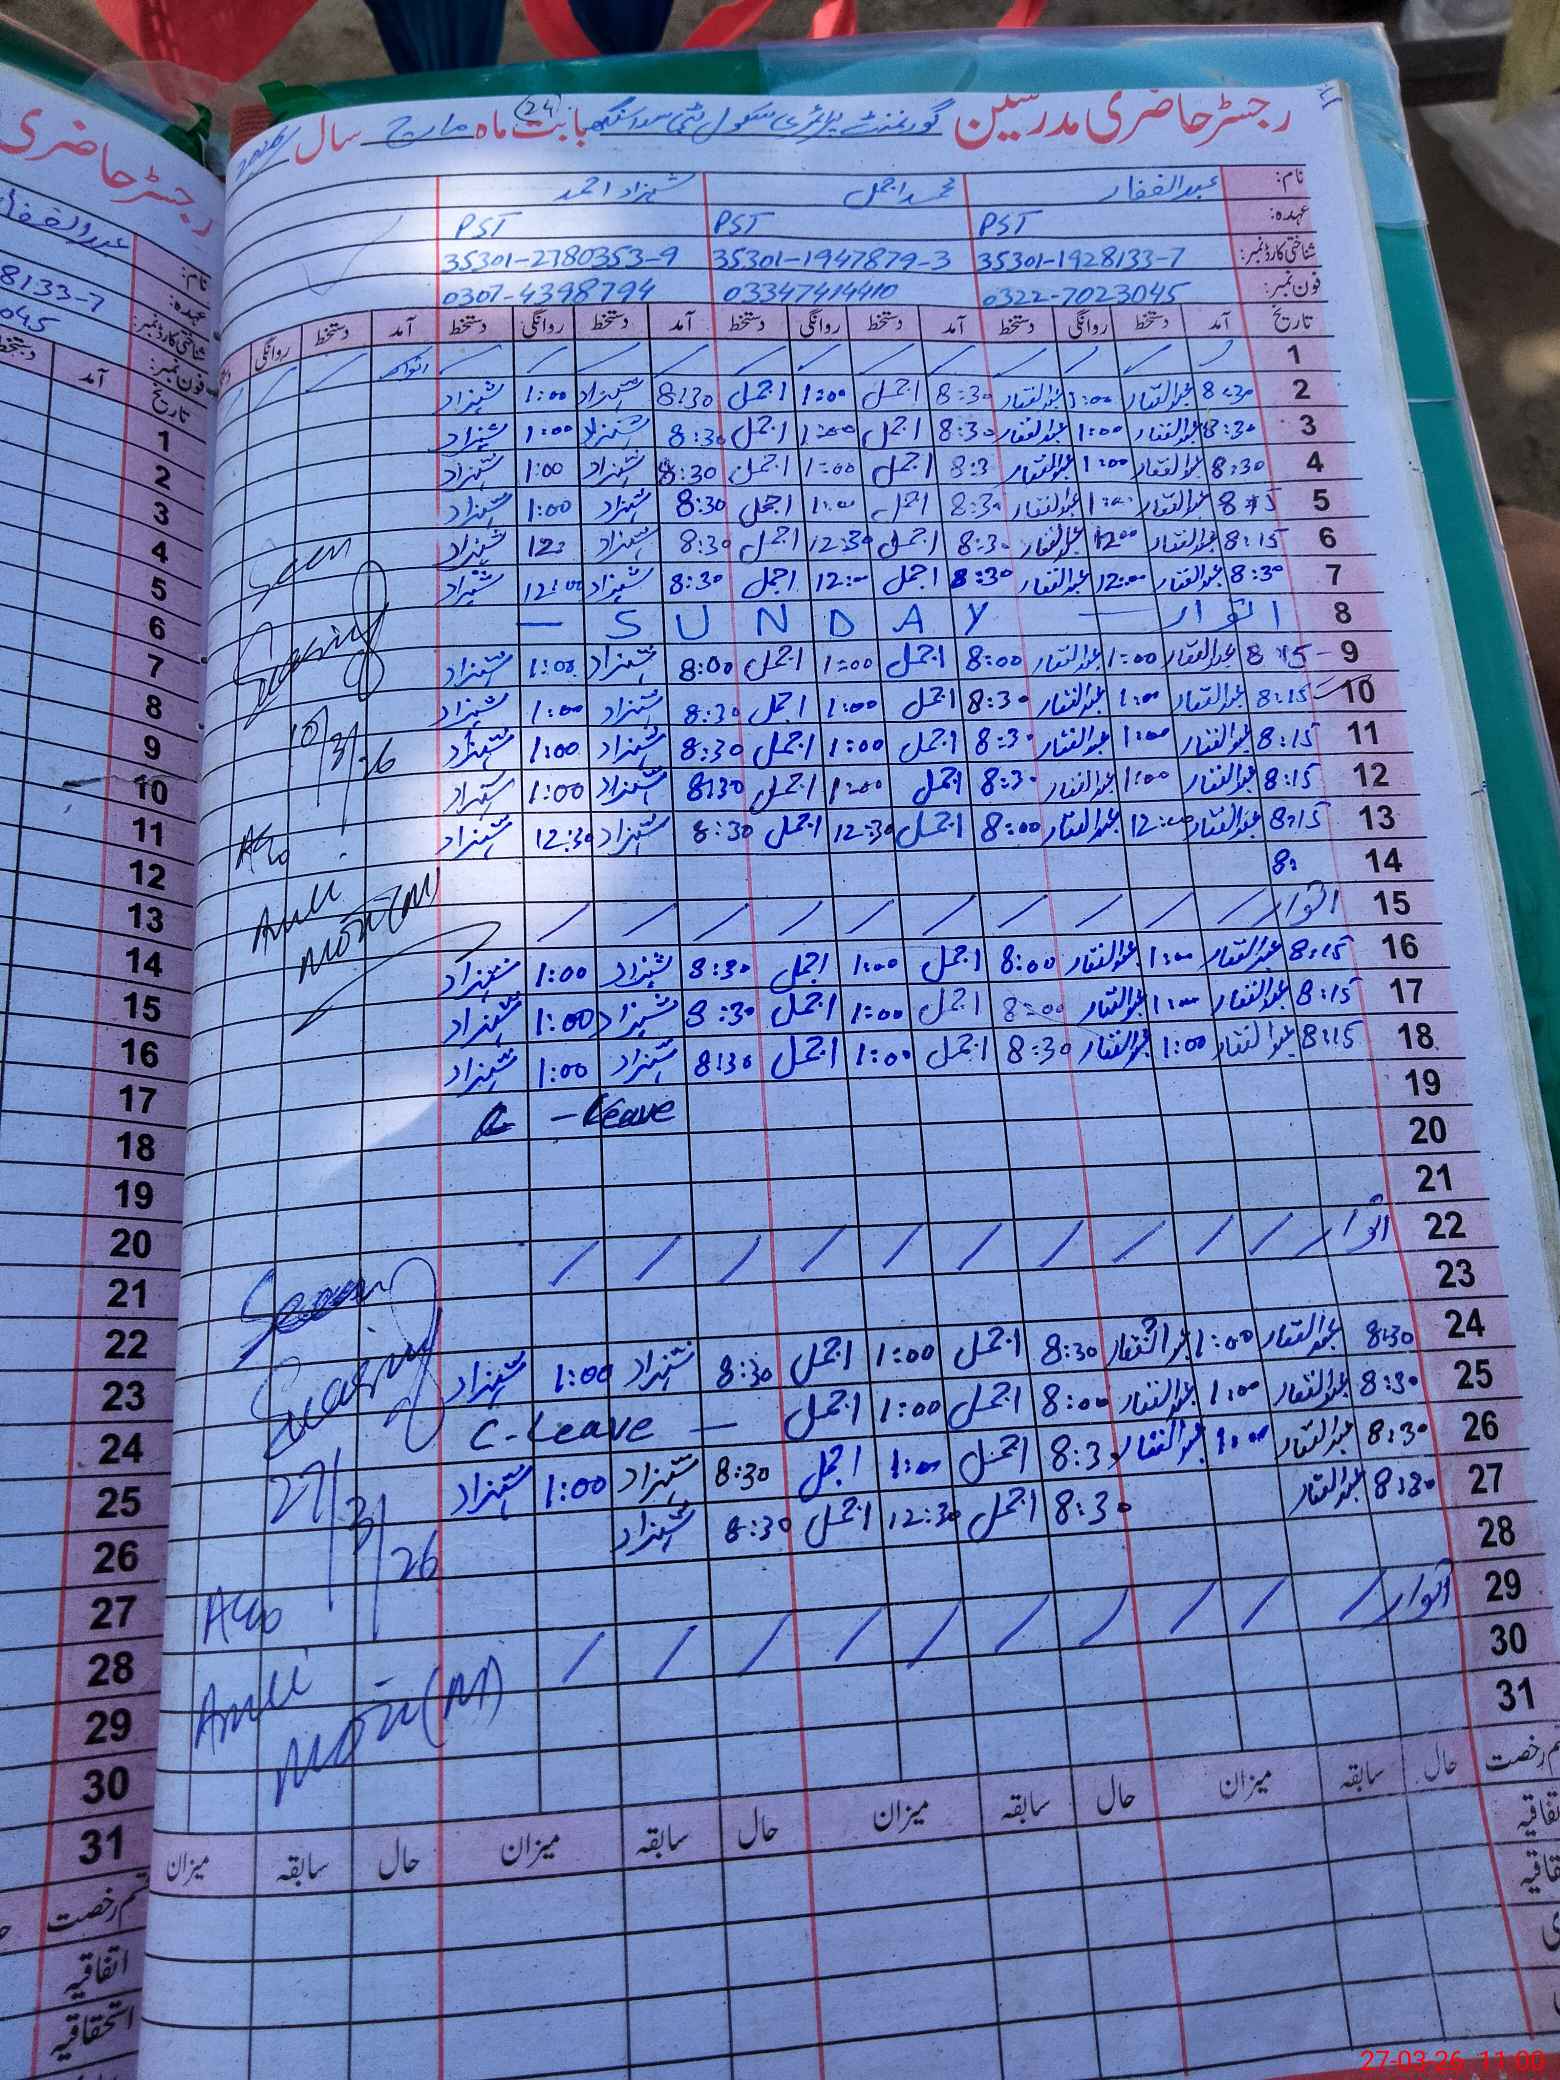 رجسٹر حاضری مدرسین گورنمنٹ پرائمری سکول بابت ماہ مارچ سال 2026
(24)
نام: عبدالغفار محمد اجمل شہزاد احمد
عہدہ: PST PST PST
شناختی کارڈ نمبر: 35301-1928133-7 35301-1947879-3 35301-2780353-9
فون نمبر: 0322-7023045 03347414410 0307-4398794
تاریخ آمد دستخط روانگی دستخط آمد دستخط روانگی دستخط آمد دستخط روانگی دستخط آمد دستخط روانگی
1 اتوار
2 8:30 عبدالغفار 1:00 عبدالغفار 8:30 اجمل 1:00 اجمل 8:30 شہزاد 1:00 شہزاد
3 8:30 عبدالغفار 1:00 عبدالغفار 8:30 اجمل 1:00 اجمل 8:30 شہزاد 1:00 شہزاد
4 8:30 عبدالغفار 1:00 عبدالغفار 8:3 اجمل 1:00 اجمل 8:30 شہزاد 1:00 شہزاد
5 عبدالغفار 1:00 عبدالغفار 8:30 اجمل 1:00 اجمل 8:30 شہزاد 1:00 شہزاد
6 8:15 عبدالغفار 12:00 عبدالغفار 8:30 اجمل 12:30 اجمل 8:30 شہزاد شہزاد
7 8:30 عبدالغفار 12:00 عبدالغفار 8:30 اجمل 12:00 اجمل 8:30 شہزاد 12:00 شہزاد
8 اتوار — SUNDAY —
9 8:15 عبدالغفار 1:00 عبدالغفار 8:00 اجمل 1:00 اجمل 8:00 شہزاد 1:00 شہزاد
10 8:15 عبدالغفار 1:00 عبدالغفار 8:30 اجمل 1:00 اجمل 8:30 شہزاد 1:00 شہزاد
11 8:15 عبدالغفار 1:00 عبدالغفار 8:30 اجمل 1:00 اجمل 8:30 شہزاد 1:00 شہزاد
12 8:15 عبدالغفار 1:00 عبدالغفار 8:30 اجمل 1:00 اجمل 8:30 شہزاد 1:00 شہزاد
13 8:15 عبدالغفار 12:00 عبدالغفار 8:00 اجمل 12:30 اجمل 8:30 شہزاد 12:30 شہزاد
14 8:
15 اتوار
16 8:15 عبدالغفار 1:00 عبدالغفار 8:00 اجمل 1:00 اجمل 8:30 شہزاد 1:00 شہزاد
17 8:15 عبدالغفار 1:00 عبدالغفار 8:00 اجمل 1:00 اجمل 8:30 شہزاد 1:00 شہزاد
18 8:15 عبدالغفار 1:00 عبدالغفار 8:30 اجمل 1:00 اجمل 8:30 شہزاد 1:00 شہزاد
19 C - Leave
20
21
22 اتوار
23
24 8:30 عبدالغفار 1:00 عبدالغفار 8:30 اجمل 1:00 اجمل 8:30 شہزاد 1:00 شہزاد
25 8:30 عبدالغفار 1:00 عبدالغفار 8:00 اجمل 1:00 اجمل C-Leave —
26 8:30 عبدالغفار 1:00 عبدالغفار 8:30 اجمل 1:00 اجمل 8:30 شہزاد 1:00 شہزاد
27 8:30 عبدالغفار 8:30 اجمل 12:30 اجمل 8:30 شہزاد
28
29 اتوار
30
31
رخصت حال سابقہ میزان حال سابقہ میزان حال سابقہ میزان
Seen
10/3/26
27/3/26
رجسٹر حاضری
نام: عبدالغفار
عہدہ:
شناختی کارڈ نمبر: 8133-7
فون نمبر: 045
تاریخ آمد دستخط
1
2
3
4
5
6
7
8
9
10
11
12
13
14
15
16
17
18
19
20
21
22
23
24
25
26
27
28
29
30
31
قسم رخصت
اتفاقیہ
استحقاقیہ
27-03-26 11:00